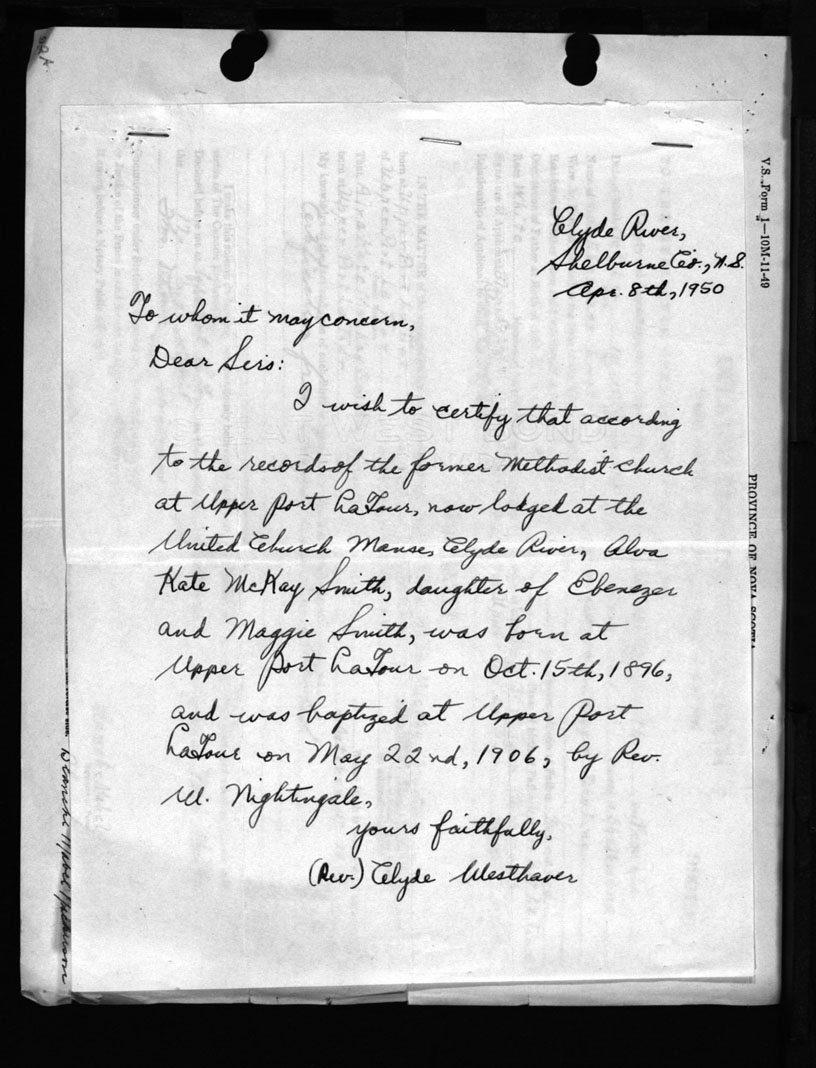 V.S. Form 1—10M-11-49
PROVINCE OF NOVA SCOTIA
Clyde River,
Shelburne Co., N.S.
Apr. 8th, 1950
To whom it may concern,
Dear Sirs:
I wish to certify that according
to the records of the former Methodist church
at Upper Port LaTour, now lodged at the
United Church Manse, Clyde River, Alva
Kate McKay Smith, daughter of Ebenezer
and Maggie Smith, was born at
Upper Port LaTour on Oct. 15th, 1896,
and was baptized at Upper Port
LaTour on May 22nd, 1906, by Rev.
W. Nightingale,
yours faithfully,
(Rev.) Clyde Westhaver